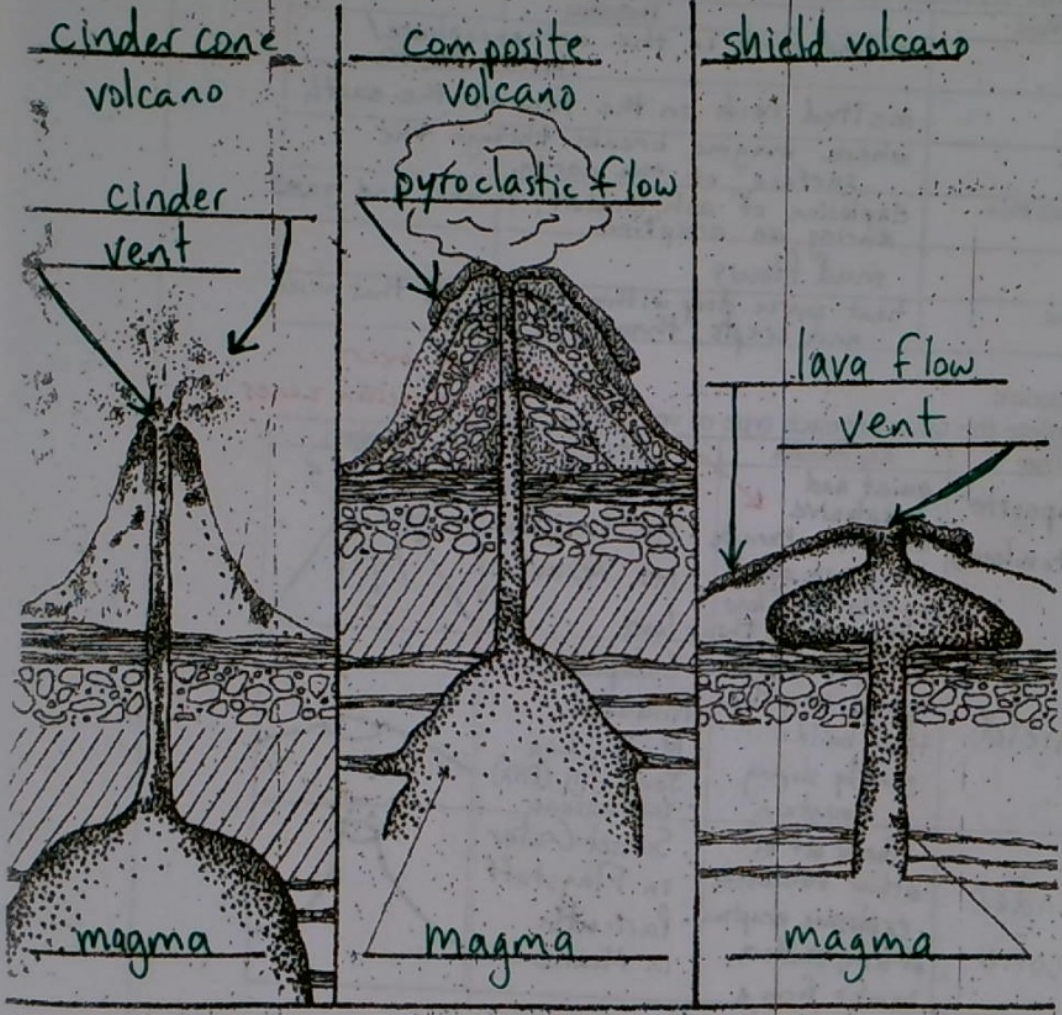 cinder cone
volcano
cinder
vent
magma
composite
volcano
pyroclastic flow
magma
shield volcano
lava flow
vent
magma